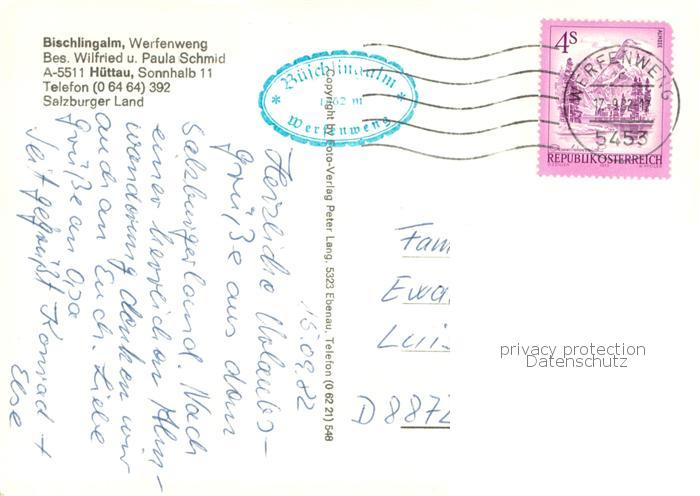 Bischlingalm, Werfenweng
Bes. Wilfried u. Paula Schmid
A-5511 Hüttau, Sonnhalb 11
Telefon (0 64 64) 392
Salzburger Land
* Büschlingalm *
1862 m
Werfenweng
4 S
ALMSEE
WERFENWENG
17.-9.82-17
5453
REPUBLIK ÖSTERREICH
Copyright by Foto-Verlag Peter Lang, 5323 Ebenau, Telefon (0 62 21) 548
15.09.82
Herzliche Urlaubs-
grüße aus dem
Salzburgerland. Nach
einer herrlichen Alm-
wanderung denken wir
auch an Euch. Liebe
Grüße an Opa
Seit gegrüßt Konrad +
Else
Fam
Ewa
Lui
D 8872
privacy protection
Datenschutz